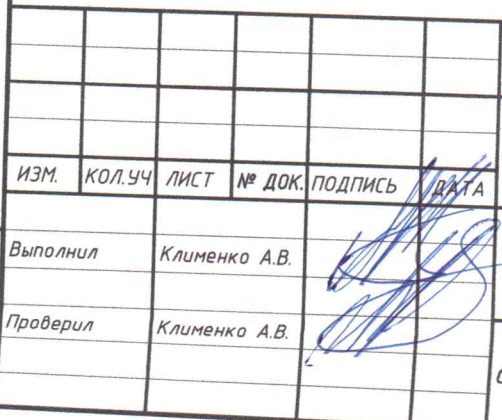 ИЗМ. КОЛ.УЧ ЛИСТ № ДОК. ПОДПИСЬ ДАТА
Выполнил Клименко А.В.
Проверил Клименко А.В.